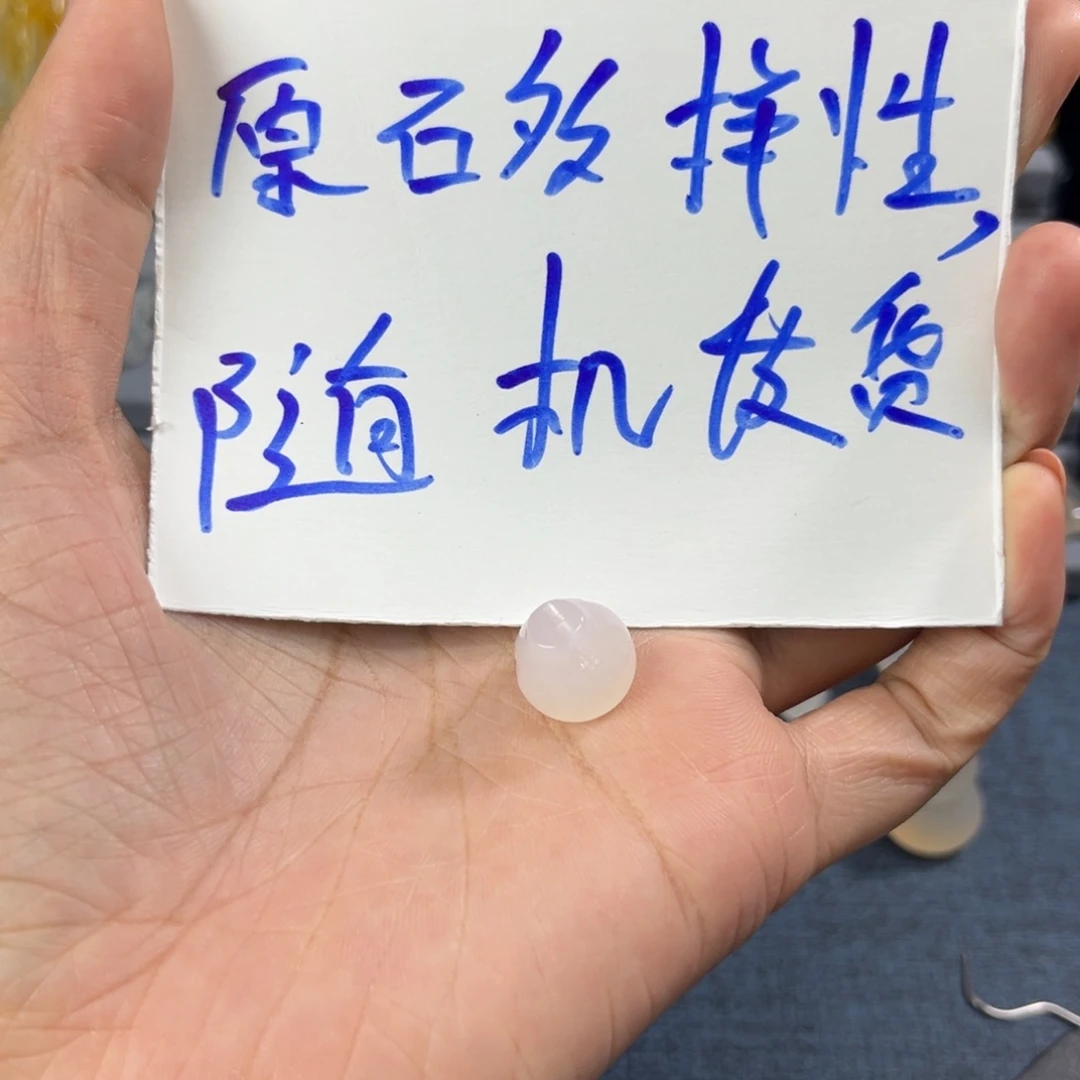 原石多择性,
随机发货